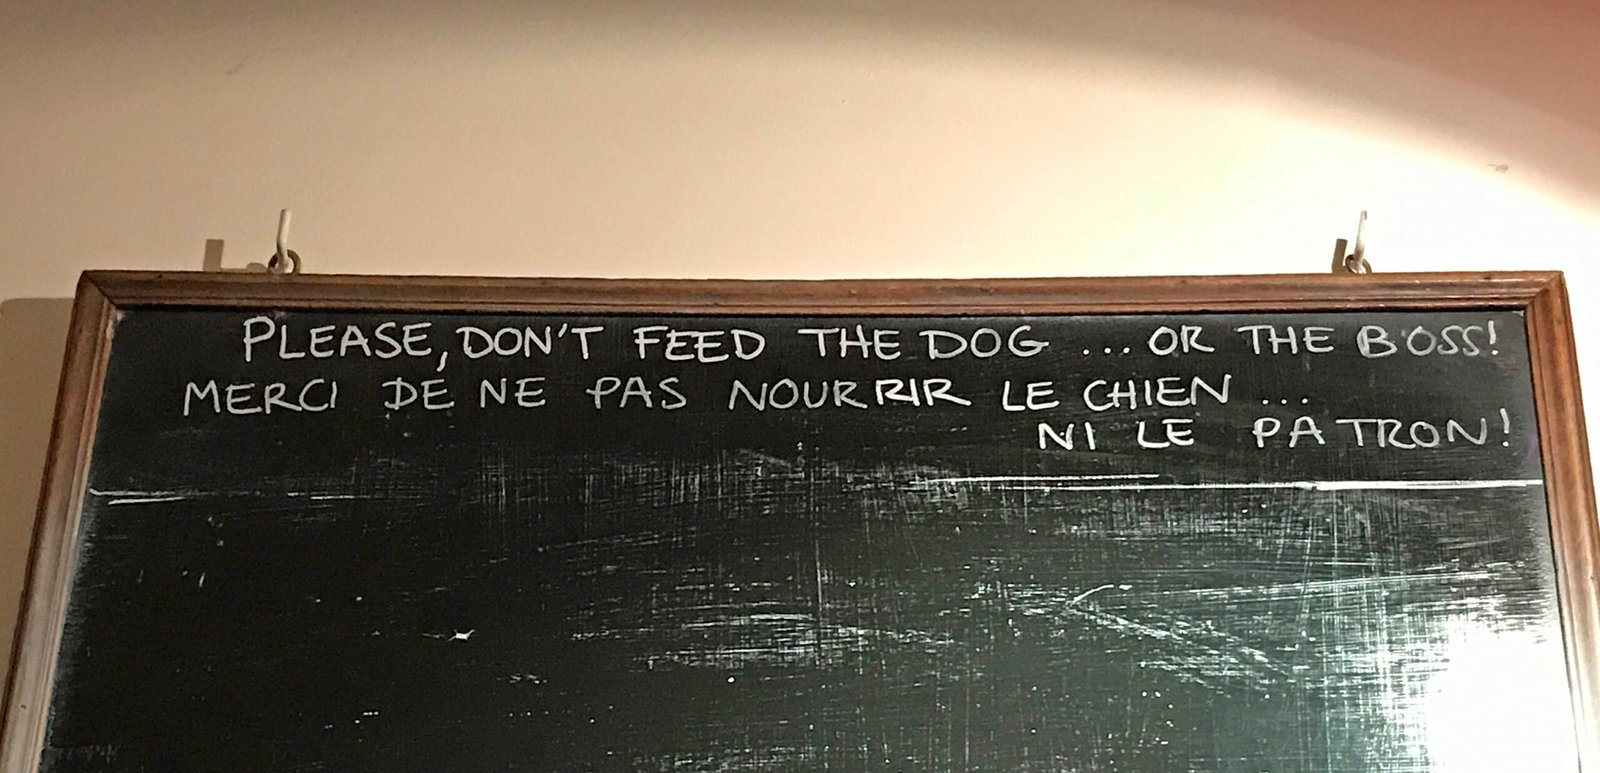 PLEASE, DON'T FEED THE DOG ... OR THE BOSS!
MERCI DE NE PAS NOURRIR LE CHIEN ...
NI LE PATRON!